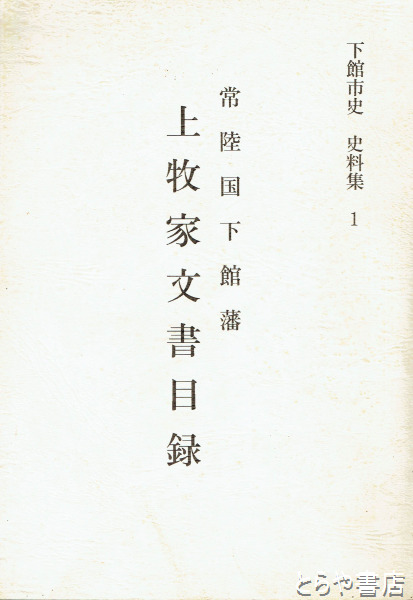 下館市史 史料集 1
常陸国下館藩
上牧家文書目録
とらや書店